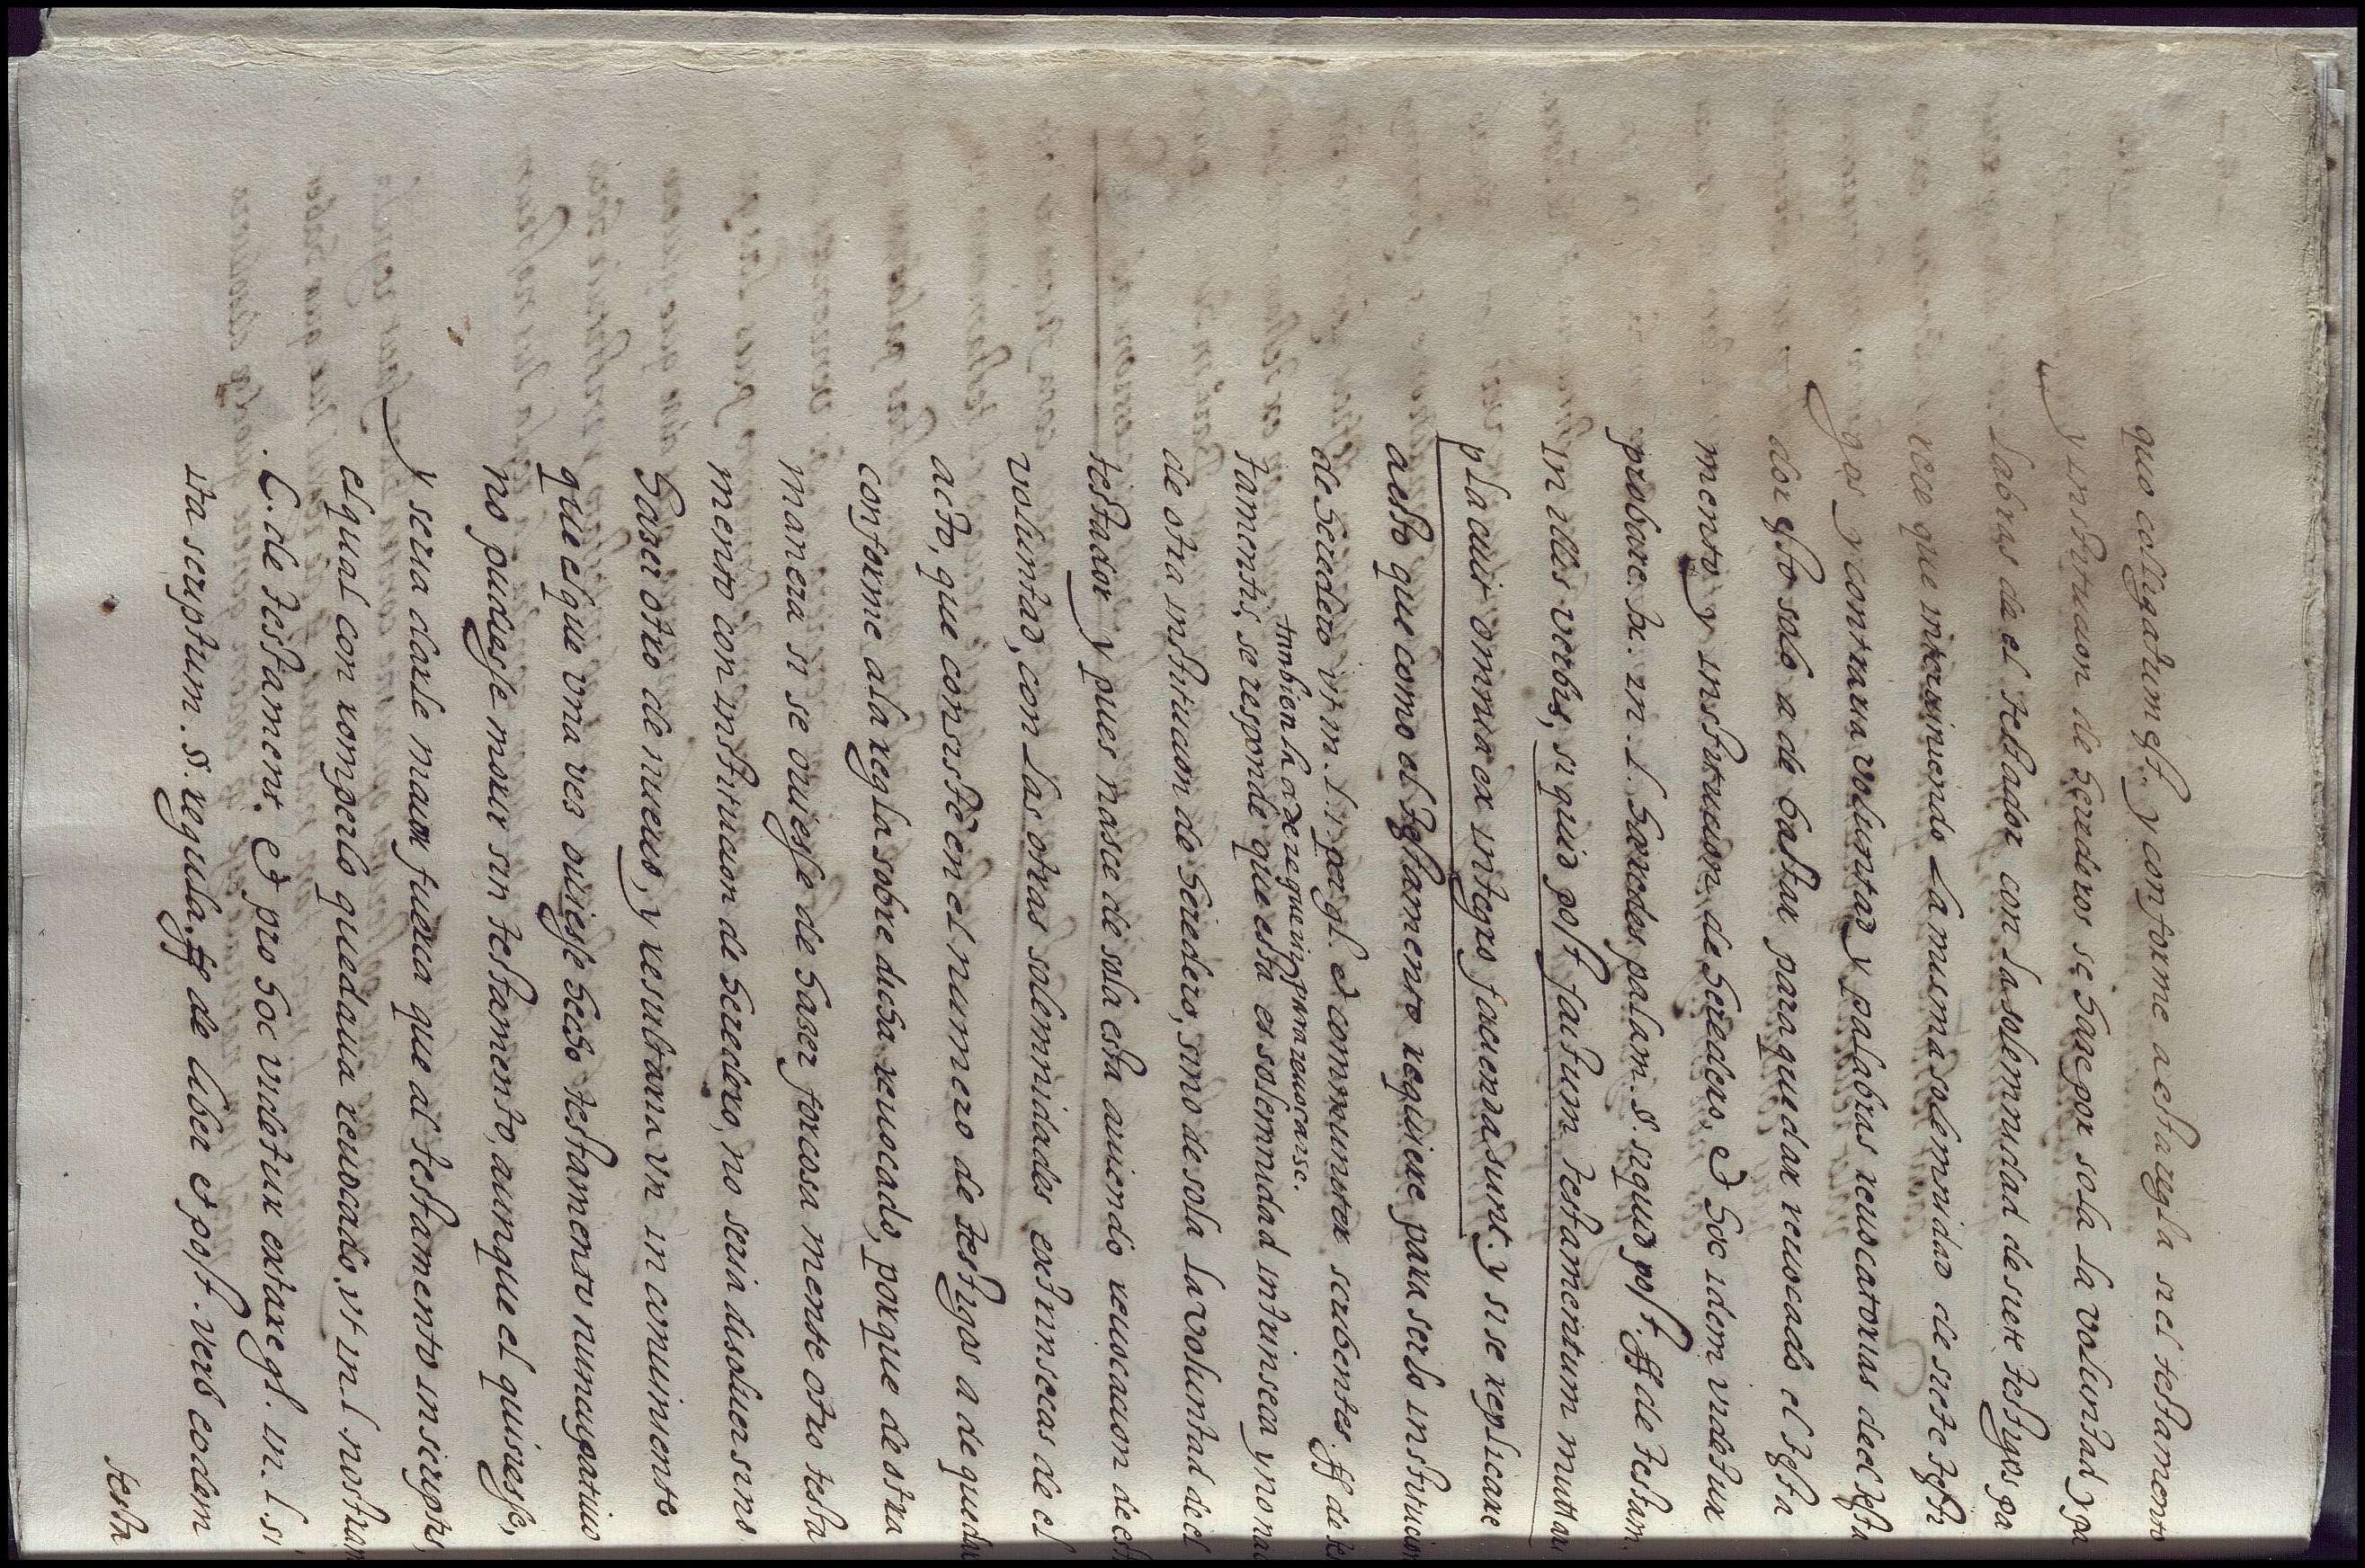 quo colligatum est. y conforme a esta regla si el testamento
y institucion de herederos se hace por sola la voluntad y pa
labras de el testador con la solemnidad de siete testigos pa
rece que interviniendo la misma solemnidad de siete testi
gos y contraria voluntad y palabras reuocatorias de el testa
dor esto solo a de bastar para quedar reuocado el testa
mento y institucion de heredero, et hoc idem videtur
probare tx. in. l. heredes palam. §. si quid post. ff de testam.
in illis verbis, si quid post factum testamentum mutari
placuit omnia ex integro facienda sunt. y si se replicare
a esto que como el testamento requiere para serlo institucion
de heredero vt in. l. 1. per gl. et communiter scribentes. ff de tes
tambien la a de requerir para reuocarse.
tamentis, se responde que esta es solemnidad intrinseca y no na
de otra institucion de heredero, sino de sola la voluntad de el
testador y pues nasce de sola esta auiendo reuocacion de est
voluntad, con las otras solemnidades extrinsecas de el
acto, que consisten en el numero de testigos a de quedar
conforme a la regla sobre dicha reuocado, porque de otra
manera si se ouiesse de haser forcosa mente otro testa
mento con institucion de heredero, no seria disoluer sino
haser otro de nueuo, y resultaria vn inconuiniente
que el que vna ves ouiesse hecho testamento nuncupatiuo
no pudiesse morir sin testamento, aunque el quisiesse,
y seria darle maior fuerca que al testamento inscriptis,
el qual con romperlo quedaua reuocado, vt in. l. nostram
. C. de testament. et pro hoc videtur extare gl. in. l. si
ita scriptum. §. regula. ff de liber et post. verb eodem
testa